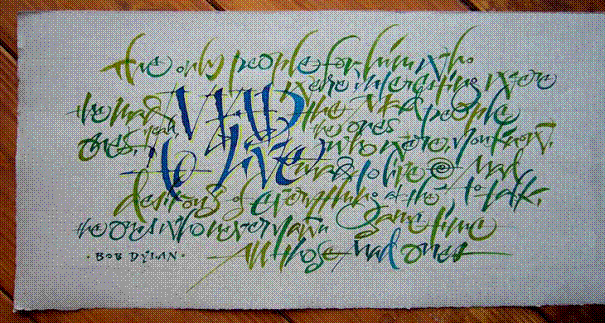 the only people for him who
were interesting were
the mad MAD the Mad people
ones, yeah the ones
to Live who were, you know,
mad to live @ Mad
desirous of everything at the to talk,
the ones who never yawn same time
All those mad ones
· BOB DYLAN ·